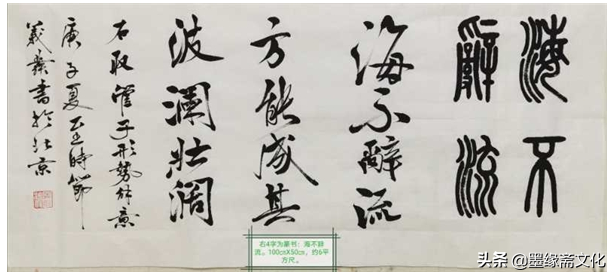 海不
辭流
海不辭流
方能成其
波瀾壯闊
右取管子形勢解意
庚子夏至時節
書於北京
右4字为篆书：海不辞
流。100㎝X50㎝，约6平
方尺。
头条 @墨缘斋文化